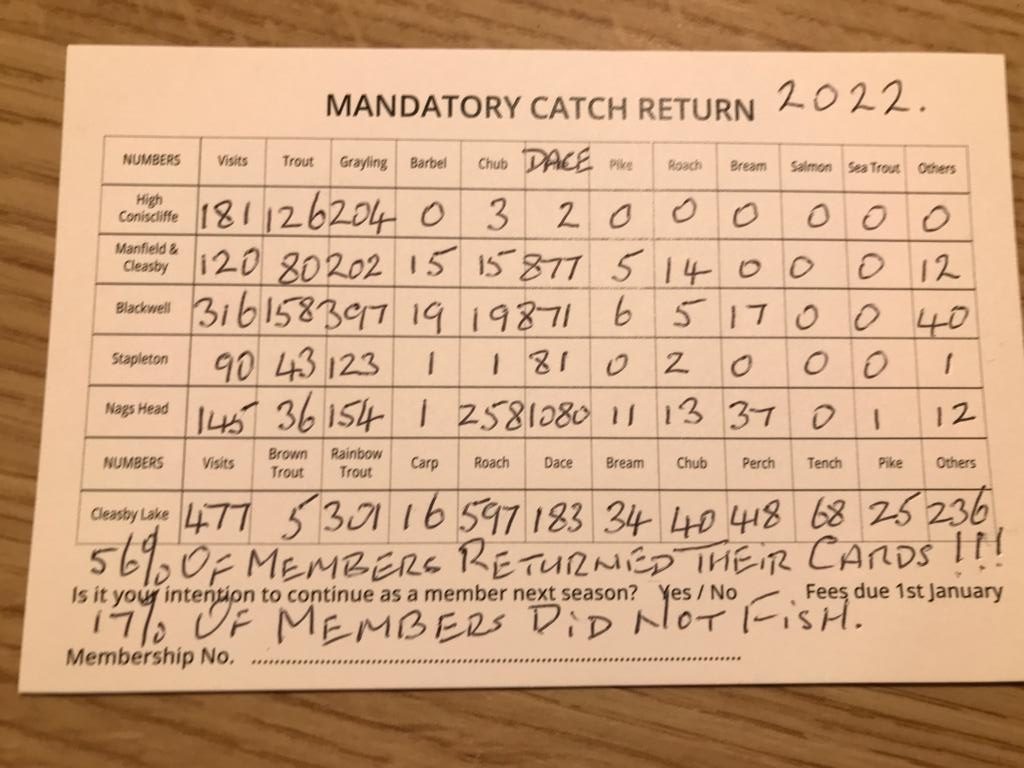 MANDATORY CATCH RETURN 2022.
NUMBERS Visits Trout Grayling Barbel Chub DACE Pike Roach Bream Salmon Sea Trout Others
High Coniscliffe 181 126 204 0 3 2 0 0 0 0 0 0
Manfield & Cleasby 120 80 202 15 15 877 5 14 0 0 0 12
Blackwell 316 158 397 19 19 871 6 5 17 0 0 40
Stapleton 90 43 123 1 1 81 0 2 0 0 0 1
Nags Head 145 36 154 1 258 1080 11 13 37 0 1 12
NUMBERS Visits Brown Trout Rainbow Trout Carp Roach Dace Bream Chub Perch Tench Pike Others
Cleasby Lake 477 5 301 16 597 183 34 40 418 68 25 236
56% OF MEMBERS RETURNED THEIR CARDS !!!
Is it your intention to continue as a member next season? Yes / No Fees due 1st January
17% OF MEMBERS DID NOT FISH.
Membership No. ..........................................................................